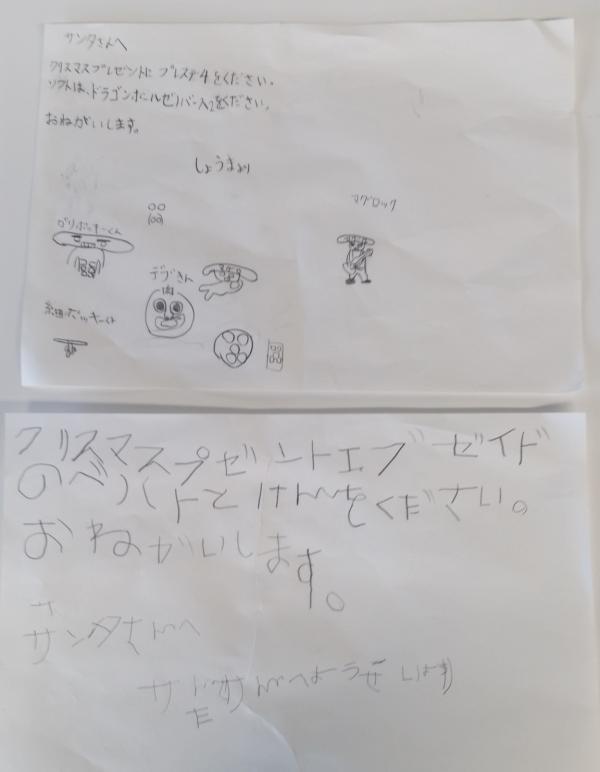 サンタさんへ
クリスマスプレゼントに プレステ4をください。
ソフトは、ドラゴンボールゼノバース2をください。
おねがいします。
しょうまより
ガリボッキーくん
マグロック
デブきん
肉
細ボッキーくん
クリスマスプゼントエブゼイド
のベルトとけんをください。
おねがいします。
サンタさんへ